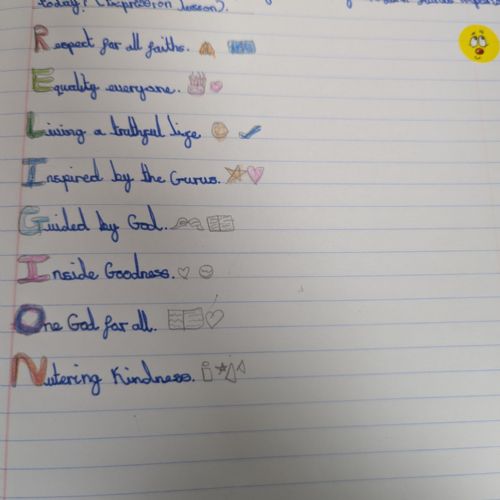 today? (Expression lesson).
Respect for all faiths.
Equality everyone.
Living a truthful life
Inspired by the Gurus.
Guided by God.
Inside Goodness.
One God for all.
Nutering Kindness.